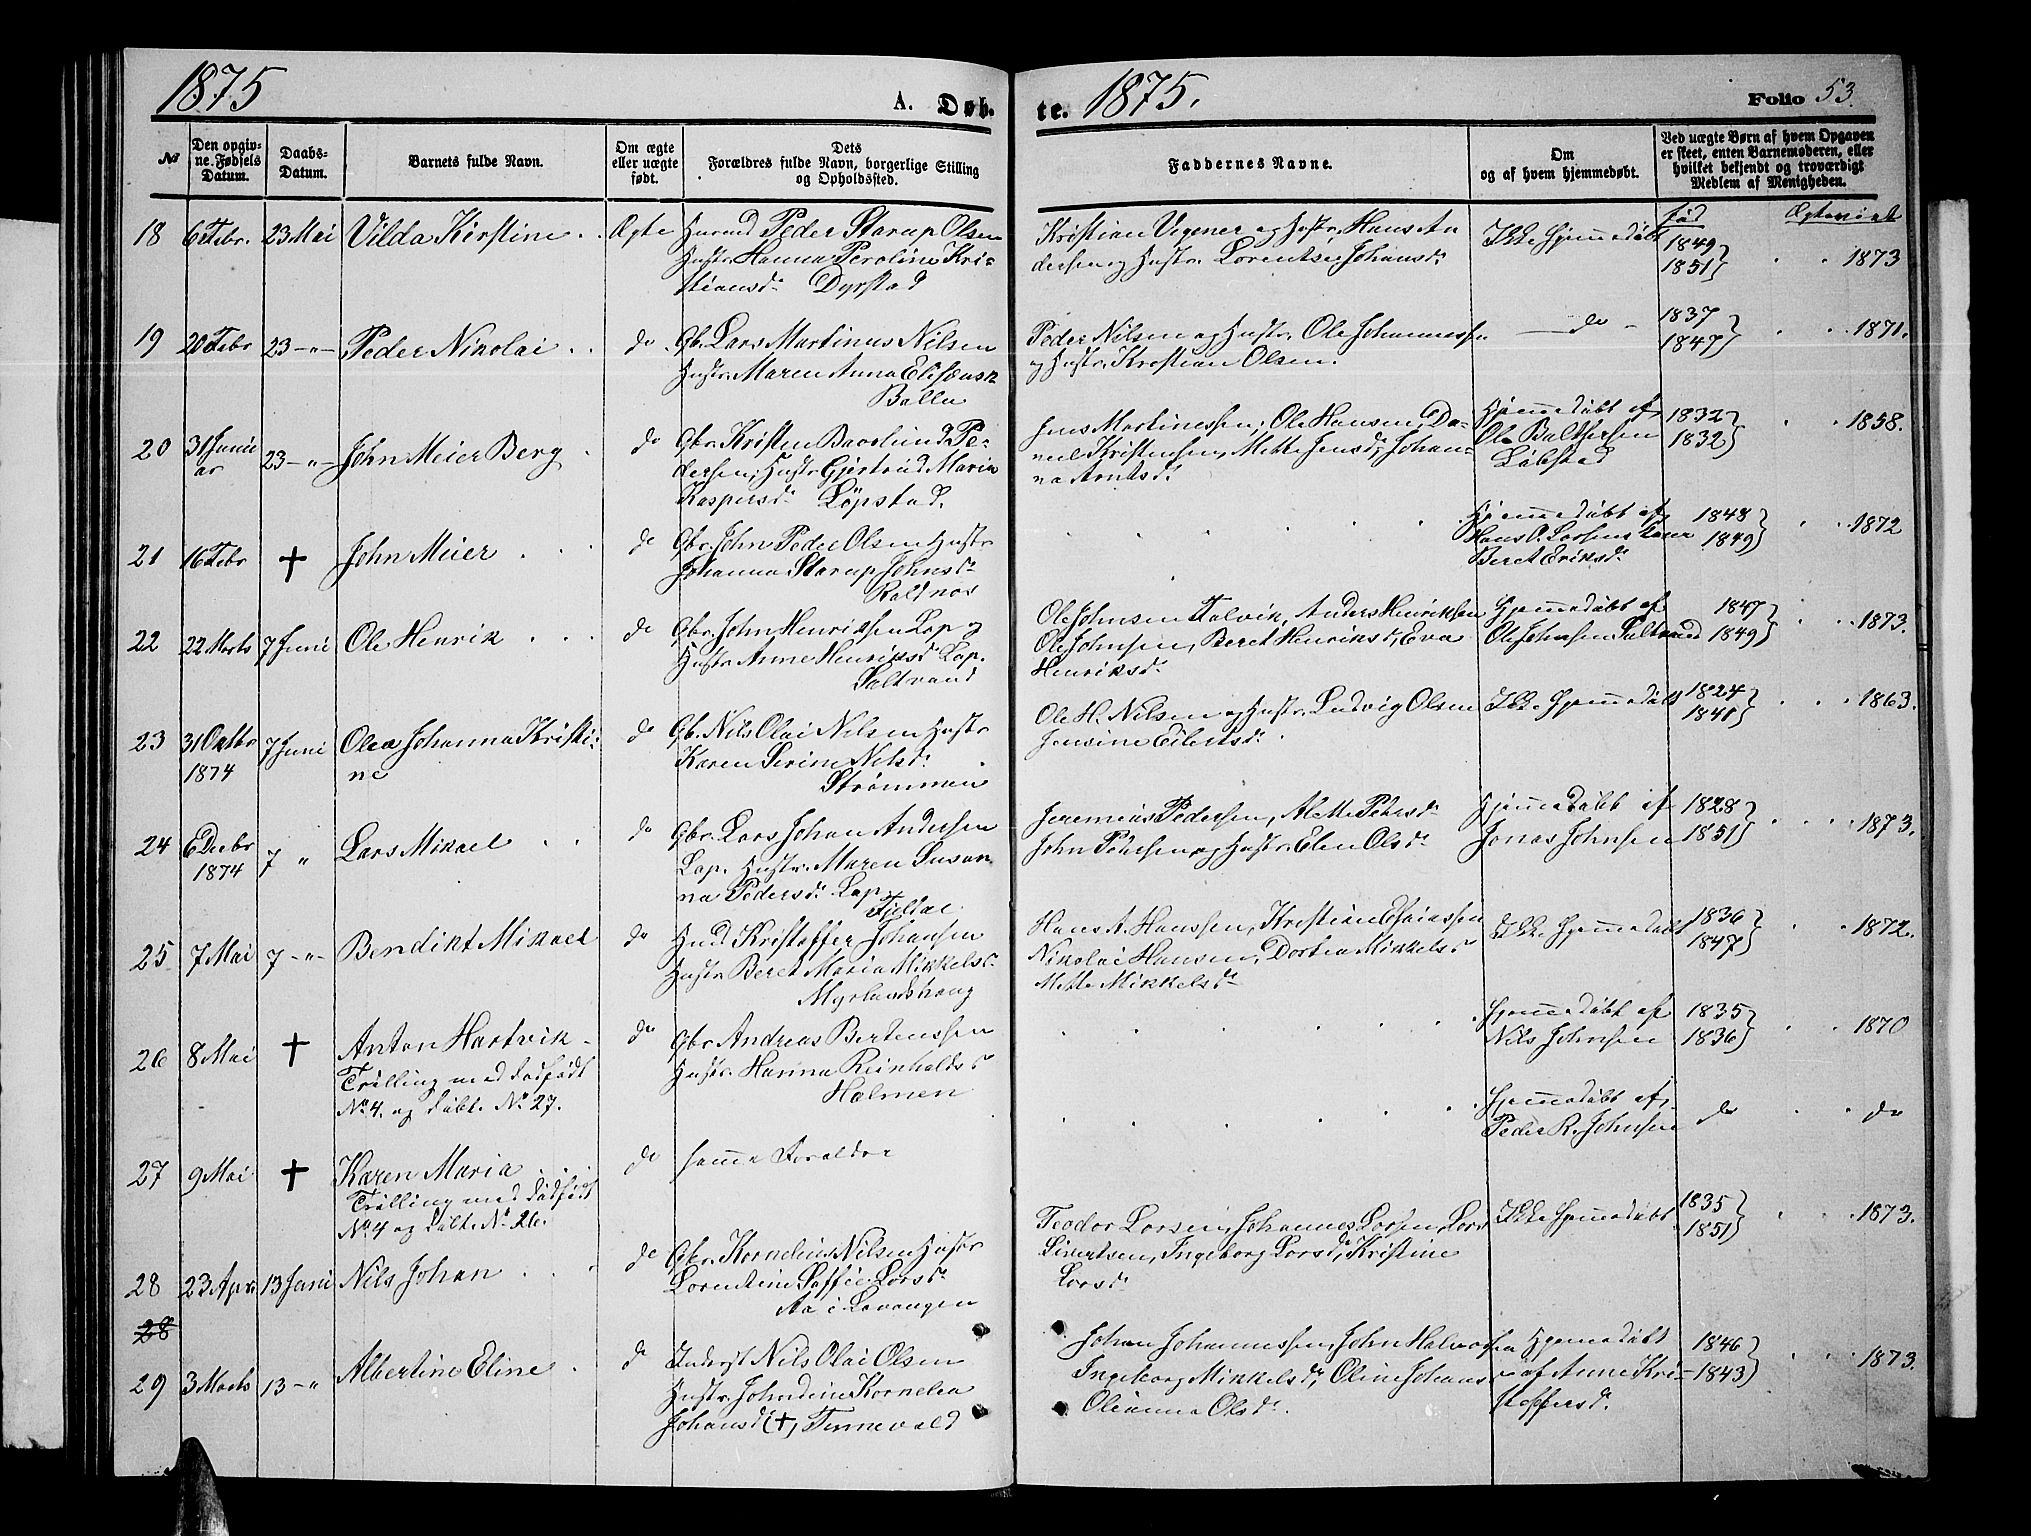 1875
A. Døb-
te. 1875.
Folio 53.
№
Den opgiv-
ne Fødsels
Datum.
Daabs-
Datum.
Barnets fulde Navn.
Om ægte
eller uægte
født.
Dets
Forældres fulde Navn, borgerlige Stilling
og Opholdssted.
Faddernes Navne.
Om
og af hvem hjemmedøbt.
Ved uægte Børn af hvem Opgaven
er skeet, enten Barnemoderen, eller
hvilket bekjendt og troværdigt
Medlem af Menigheden.
fød Ægteviet
18 6 Febr. 23 Mai Vilda Kirstine Ægte
Husmd Peder Starup Olsen
Hustr. Hanna Peroline Kri-
stiansd. Dyrstad
Kristian Vigener og Hustr, Hans An
dersen og Hustr. Lorentse Johansd.
Ikke Hjemmedøbt
1849
1851 1873
19 20 Febr 23 -"- Peder Nikolai do
Gbr. Lars Martinus Nilsen
Hustr. Maren Anna Elisæusd.
Balla
Peder Nilsen og Hustr. Ole Johannessen
og Hustr. Kristian Olsen.
do
1837
1847 1871.
20 31 Janu
ar 23 -"- John Meier Berg do
Gbr. Kristen Baarlund Pe-
dersen, Hustr. Gjertrud Maria
Kaspersd. Løpstad.
Jens Martinessen, Ole Hansen, Da-
niel Kristensen, Mette Jensd., Johan-
na Arntsd.
Hjemmedøbt af
Ole Baltsersen
Løbstad
1832
1832 1858.
21 16 Febr + John Meier do
Gbr. John Peder Olsen Hustr
Johanna Starup Johnsd.
Roldnæs
Hjemmedøbt af
Beret Eriksd.
1848
1849 1872
22 22 Marts 7 Juni Ole Henrik do
Gbr. John Henriksen Lap og
Hustr Anne Henriksd. Lap.
Saltvand
Ole Johnsen Kalvik, Anders Henriksen
Ole Johnsen, Beret Henriksd, Eva
Henriksd.
Hjemmedøbt af
Ole Johnsen Saltvand
1847
1849 1873.
23 31 Oktbr
1874 7 Juni Olea Johanna Kristi-
ne do
Gb. Nils Olai Nilsen Hustr
Karen Serine Nilsd.
Strømmen
Ole H. Nilsen og Hustr. Ludvig Olsen
Jensine Eilertsd.
Ikke Hjemmedøbt
1824
1841 1863.
24 6 Decbr
1874 7 " Lars Mikael do
Gbr. Lars Johan Andersen
Lap. Hustr. Maren Susan
na Pedersd. Lap
Jeremias Pedersen, Alette Petersd.
John Petersen og Hustr. Elen Olsd.
Hjemmedøbt af
Jonas Johnsen
1828
1851 1873.
25 7 Mai 7 -"- Bendikt Mikael do
Husd Kristoffer Johansen
Hustr Beret Maria Mikkelsd.
Myrlandshaug
Hans A. Hanssen, Kristian Esaiassen
Nikolai Hansen, Dortea Mikkelsd
Mette Mikkelsd.
Ikke Hjemmedøbt
1836
1847 1872.
26 8 Mai + Anton Hartvik
Trilling med dødfødt
No. 4. og døbt. No. 27. do
Gbr Andreas Bertenssen
Hustr. Hanna Reinholdsd
Holmen
Hjemmedøbt af
Nils Johnsen
1835
1836 1870
27 9 Mai + Karen Maria
Trilling med dødfødt
No. 4 og døbt. No. 26. do
samme Foreldre
Hjemmedøbt af
Peder R. Johnsen
do do
28 23 Apr. 13 Juni Nils Johan do
Gbr. Kornelius Nilsen Hustr
Lorentine Soffie Larsd.
Aa i Lavangen
Teodor Larsen, Johannes Larsen, Lars
Sivertsen, Ingeborg Larsd, Kristine
Larsd.
Ikke Hjemmedøbt
1835
1851 1873.
28
29 3 Marts 13 -" Albertine Eline do
Inderst Nils Olai Olsen
Hustr. Johndine Kornelia
Johansd (+), Tennevold
Johan Johannessen, John Halvorsen
Ingeborg Mikkelsd, Oline Johansd
Oleanna Olsd.
Hjemmedøbt
af Anne Kri-
stoffersd.
1846
1843 1873.